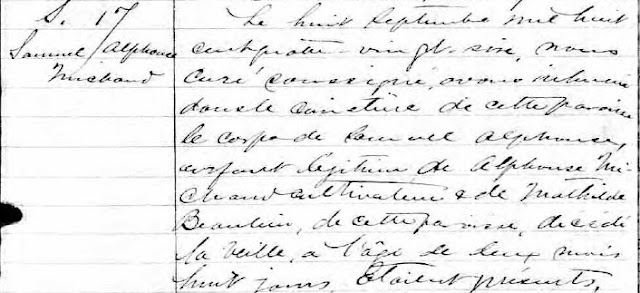 S. 17
Samuel Alphonse
Michaud
Le huit Septembre mil huit
cent quatre-vingt-six, nous
Curé soussigné, avons inhumé
dans le cimetière de cette paroisse
le corps de Samuel Alphonse,
enfant légitime de Alphonse Mi-
chaud cultivateur & de Mathilde
Beaulieu, de cette paroisse, décédé
la veille, à l'âge de deux mois
huit jours. Étaient présents,